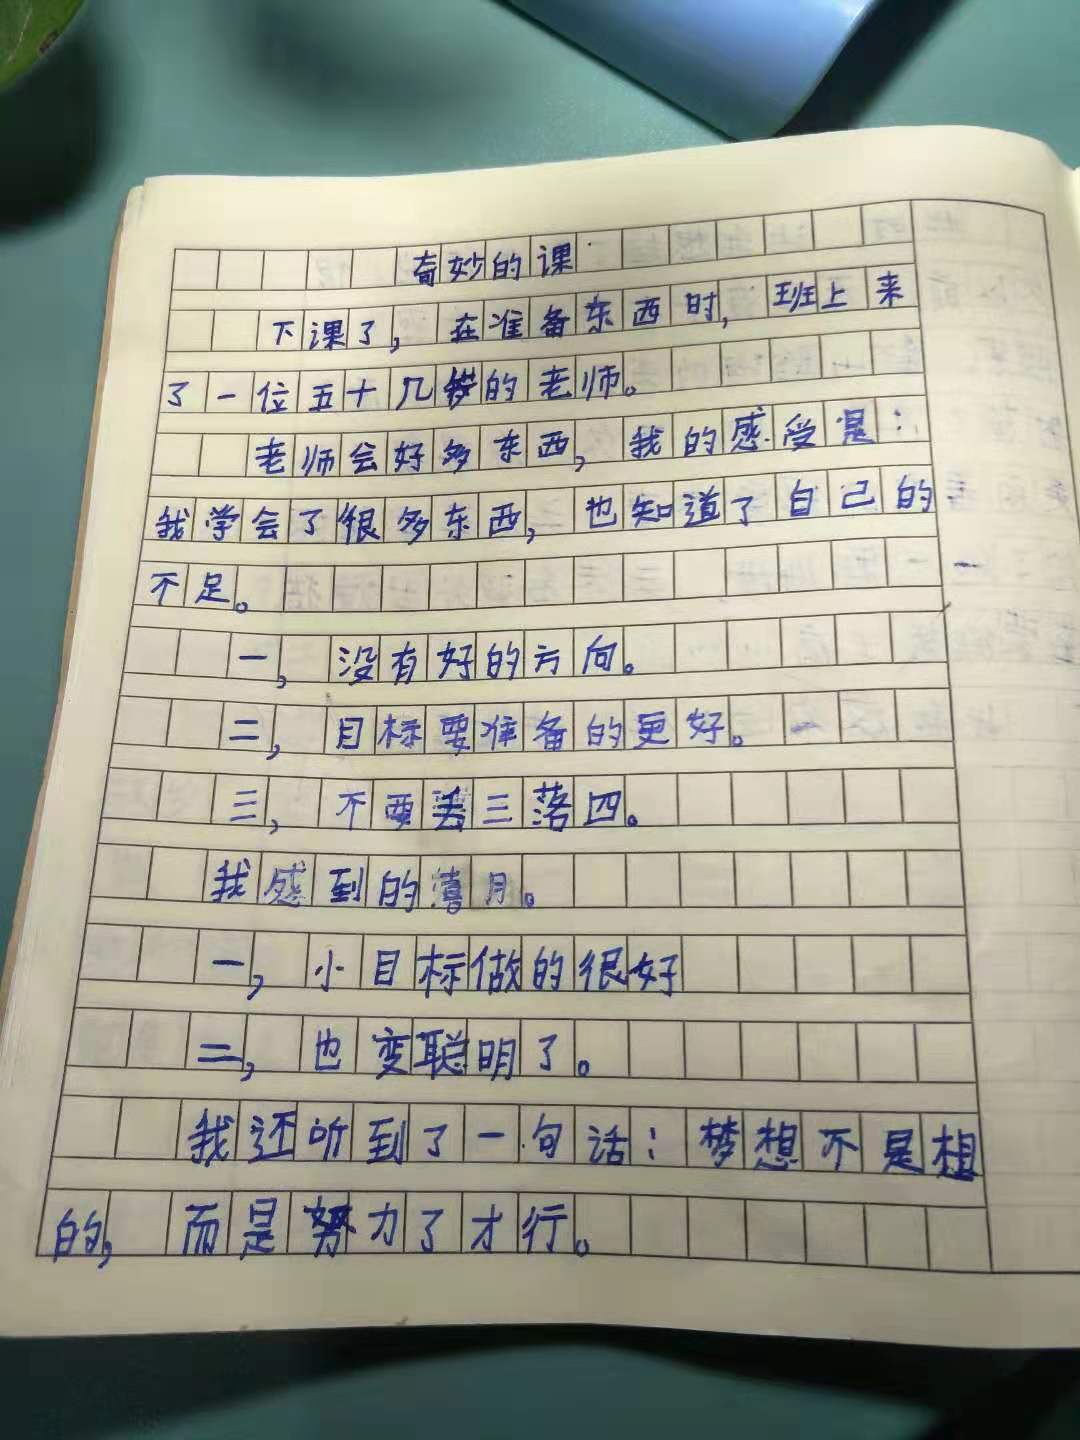 奇妙的课
下课了，在准备东西时，班上来
了一位五十几岁的老师。
老师会好多东西，我的感受是：
我学会了很多东西，也知道了自己的
不足。
一，没有好的方向。
二，目标要准备的更好。
三，不要丢三落四。
我感到的喜月。
一，小目标做的很好
二，也变聪明了。
我还听到了一句话：梦想不是想
的，而是努力了才行。